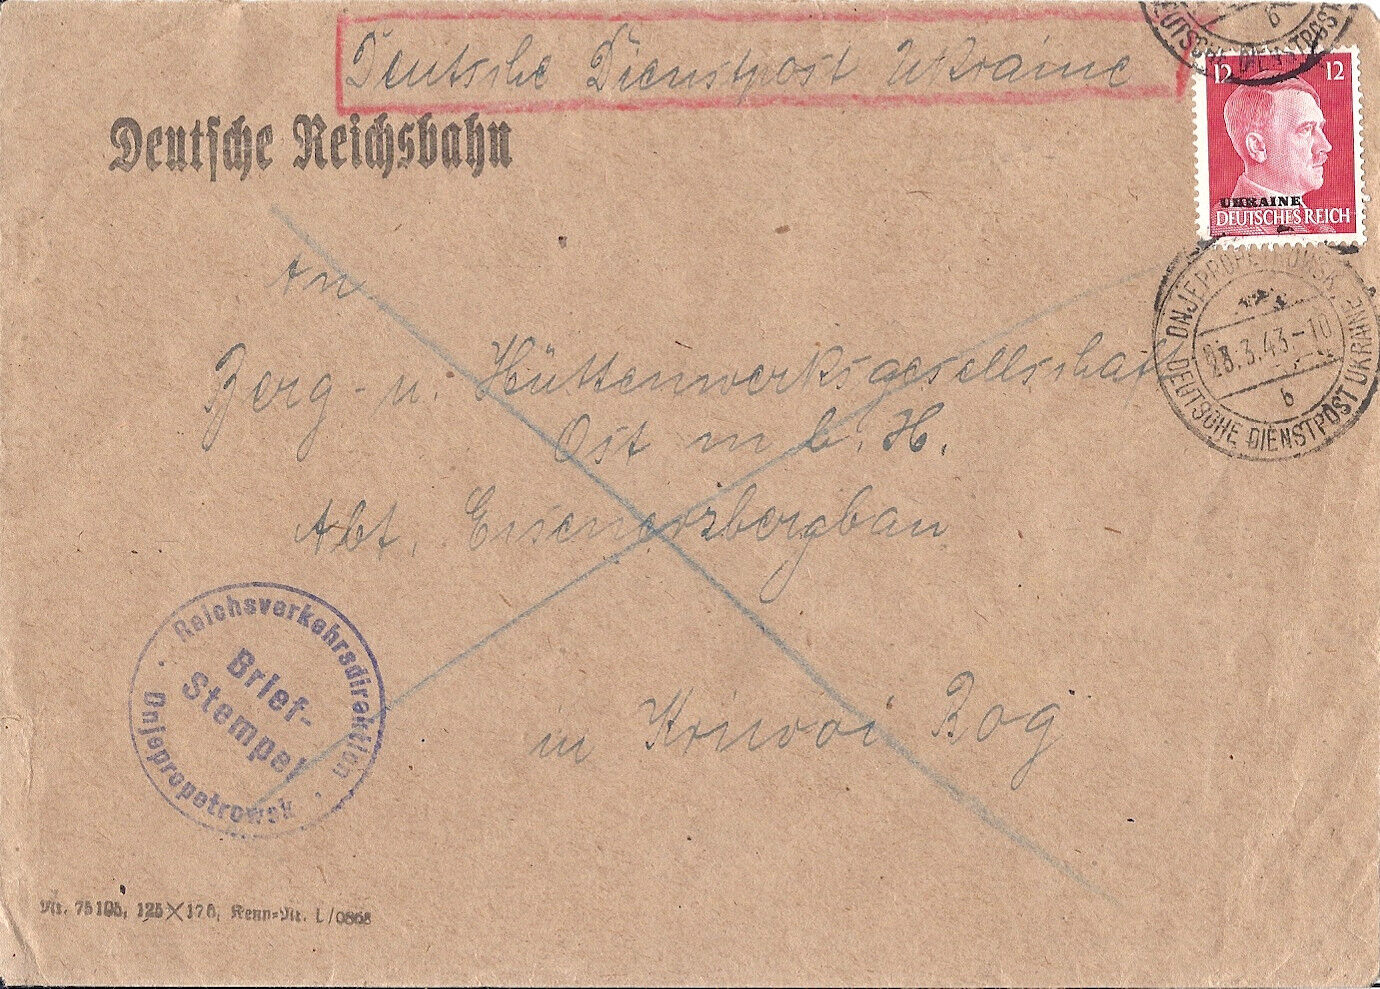 Deutsche Dienstpost Ukraine
DEUTSCHE DIENSTPOST
b
12 12
UKRAINE
DEUTSCHES REICH
Deutsche Reichsbahn
DNJEPROPETROWSK
23.3.43-10
b
DEUTSCHE DIENSTPOST UKRAINE
An
Berg- u. Hüttenwerksgesellschaft
Ost m b. H.
Abt. Eisenerzbergbau
in Kriwoi Rog
Reichsverkehrsdirektion
Brief-
Stempel
Dnjepropetrowsk
75105, 125×176, Kenn=Nr. L/0868